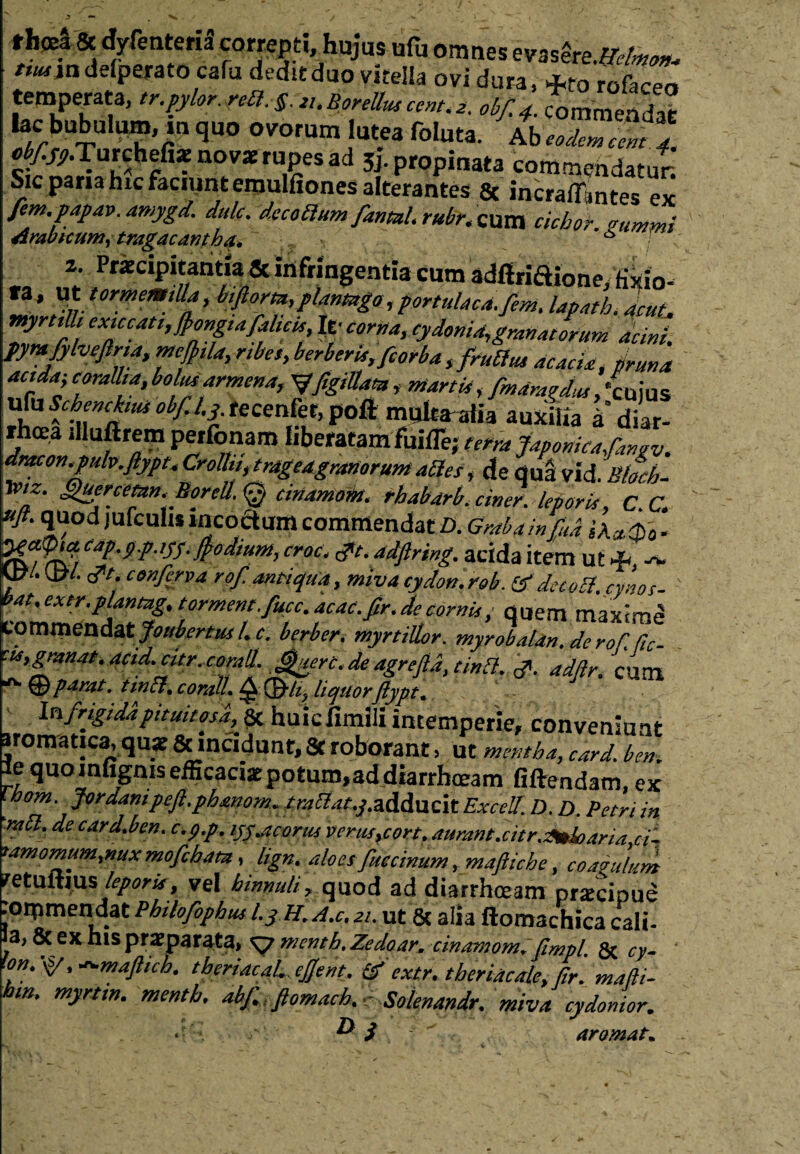 rhœâ & dyſenteriâ correpti, hujus uſu omnes evasêre. Helmon-
tius in deſperato caſu dedit duo vitella ovi dura, 🜊to roſaceo
temperata, tr. pylor. rect. §. 21. Borellus cent. 2. obſ. 4. commendat
lac bubulum, in quo ovorum lutea ſoluta. Ab eodem cent. 4.
obſ. 59. Turcheſiæ novæ rupes ad ʒj. propinata commendatur.
Sic paria hîc faciunt emulſiones alterantes & incraſſantes ex
ſem. papav. amygd. dulc. decoctum ſantal. rubr. cum cichor. gummi
Arabicum, tragacantha.
2. Præcipitantia & infringentia cum adſtrictione, fixio-
ra, ut tormentilla, biſtorta, plantago, portulaca. ſem. lapath. acut.
myrtilli exiccati, ſpongia ſalicis, It. corna, cydonia, granatorum acini.
pyra ſylveſtria, meſpila, ribes, berberis, ſcorba, fructus acacia, pruna
acida; corallia, bolus armena, 🜃 ſigillata, martis, ſmaragdus, cujus
uſu Schenckius obſ. l. 3. recenſet, poſt multa alia auxilia à diar-
rhœa illuſtrem perſonam liberatam fuiſſe; terra Japonica, ſangv.
dracon. pulv. ſtypt. Crollii, trageagranorum actes, de quâ vid. Bloch-
wiz. Quercetan. Borell. cinamom. rhabarb. ciner. leporis, C. C.
uſt. quod juſculis incoctum commendat D. Graba in ſuâ ἐλαφο-
γραφία cap. 9. p. 155. ſpodium, croc. ♂t. adſtring. acida item ut
♂t. conſerva roſ. antiqua, miva cydon. rob. & decoct. cynos-
bat. extr. plantag. torment. ſucc. acac. ſir. de cornis, quem maximè
commendat Joubertus l. c. berber. myrtillor. myrobalan. de roſ. ſic-
cis, granat. acid. citr. corall. Querc. de agreſtâ, tinct. ♂. adſtr. cum
parat. tinct. corall. liquor ſtypt.
In frigidâ pituitosâ, & huic ſimili intemperie, conveniunt
aromatica, quæ & incidunt, & roborant, ut mentha, card. ben.
de quo inſignis efficaciæ potum, ad diarrhœam ſiſtendam, ex
Thom. Jordani peſt. phænom. tractat. 3. adducit Excell. D. D. Petri in
tract. de card. ben. c. 9. p. 155. acorus verus, cort. aurant. citr. zedoaria, ci-
namomum, nux moſchata, lign. aloes ſuccinum, maſtiche, coagulum
vetuſtius leporis, vel hinnuli, quod ad diarrhœam præcipuè
commendat Philoſophus l. 3 H. A. c. 21. ut & alia ſtomachica cali-
da, & ex his præparata, 🜄 menth. Zedoar. cinamom. ſimpl. & cy-
don. maſtich. theriacal. eſſent. & extr. theriacale, ſir. maſti-
chin. myrtin. menth. abſ. ſtomach. Solenandr. miva cydonior.
D 3 aromat.